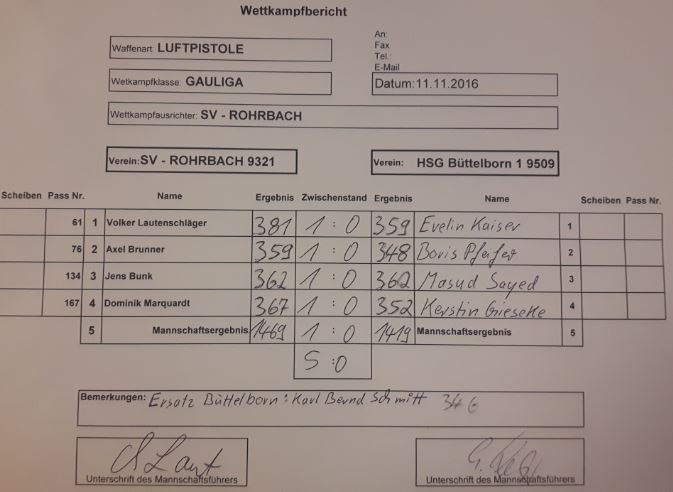 Wettkampfbericht
An:
Fax
Tel.:
E-Mail
Waffenart: LUFTPISTOLE
Wetkampfklasse: GAULIGA
Datum:11.11.2016
Wettkampfausrichter: SV - ROHRBACH
Verein: SV - ROHRBACH 9321 Verein: HSG Büttelborn 1 9509
Scheiben Pass Nr. Name Ergebnis Zwischenstand Ergebnis Name Scheiben Pass Nr.
61 1 Volker Lautenschläger 381 1 : 0 359 Evelin Kaiser 1
76 2 Axel Brunner 359 1 : 0 348 Boris Pfeifer 2
134 3 Jens Bunk 362 1 : 0 360 Masud Sayed 3
167 4 Dominik Marquardt 367 1 : 0 352 Kerstin Gieseke 4
5 Mannschaftsergebnis 1469 1 : 0 1419 Mannschaftsergebnis 5
5 : 0
Bemerkungen: Ersatz Büttelborn : Karl Bernd Schmitt 346
Unterschrift des Mannschaftsführers Unterschrift des Mannschaftsführers